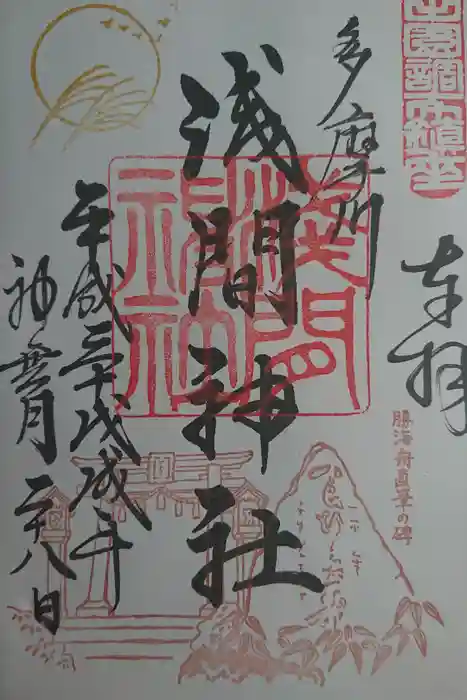 田園調布鎮座
奉拝
勝海舟直筆の碑
多摩川
浅間神社
淺間神社
平成三十戊戌年
神無月二十八日